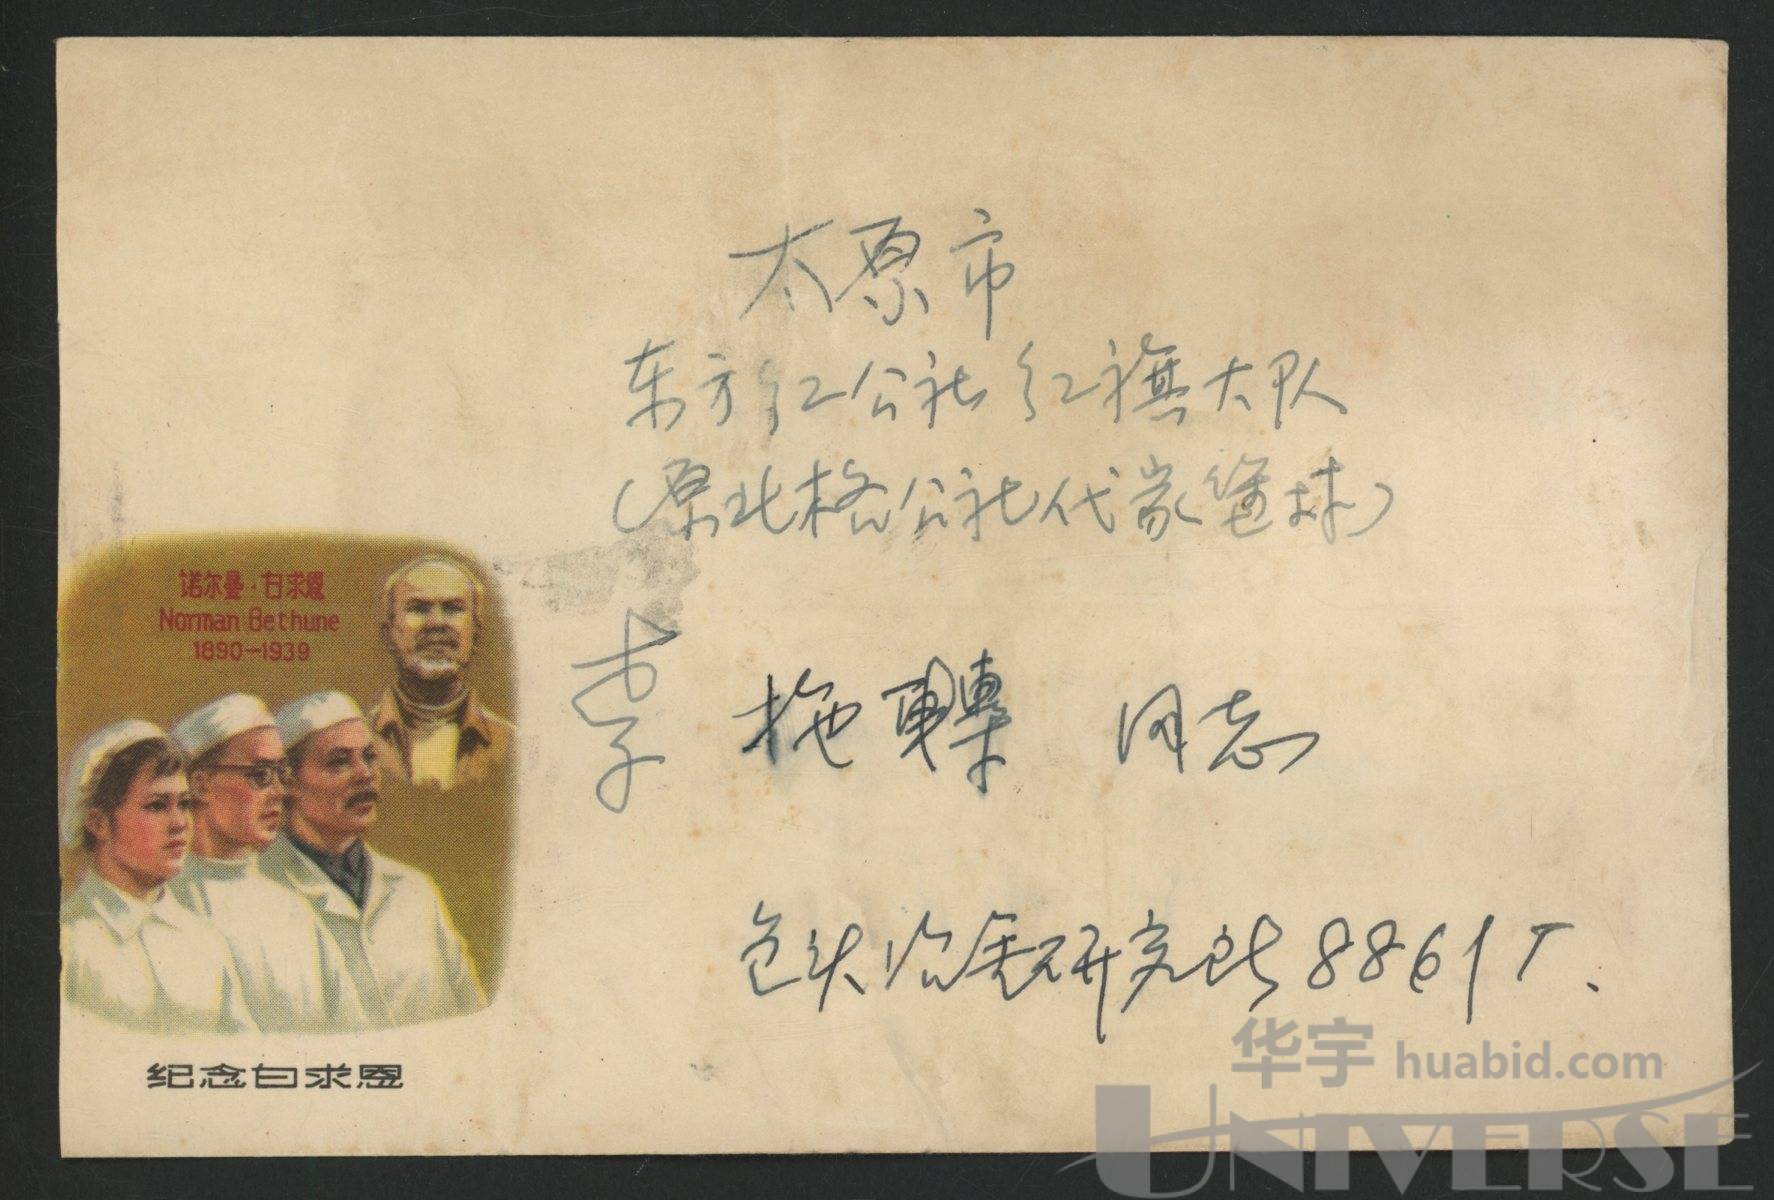 太原市
东方红公社红旗大队
(原北格公社代家堡村)
李 拖 同志
包头冶金研究所8861T.
诺尔曼·白求恩
Norman Bethune
1890—1939
纪念白求恩
华宇 huabid.com
UNIVERSE